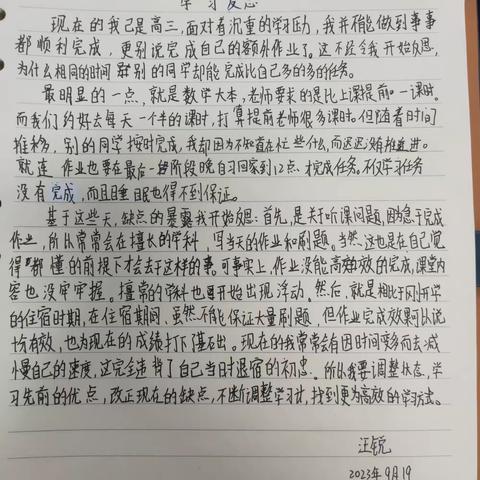 学习反思
现在的我已是高三,面对着沉重的学习压力,我并不能做到事事
都顺利完成,更别说完成自己的额外作业了。这不经令我开始反思,
为什么相同的时间别的同学却能完成比自己多的多的任务。
最明显的一点,就是数学大本,老师要求的是比上课提前一课时。
而我们约好去每天一个半的课时,打算提前老师很多课时。但随着时间
推移,别的同学按时完成,我却因为不知道在忙些什么,而迟迟没有推进。
就连作业也要在最后一阶段晚自习回家到12点才完成任务。不仅学习任务
没有完成,而且睡眠也得不到保证。
基于这些天,缺点的暴露我开始反思:首先,是关于听课问题,因为急于完成
作业,所以常常会在擅长的学科,写当天的作业和刷题。当然,这也是在自己觉
得都懂的前提下才会去干这样的事。可事实上,作业没能高效的完成,课堂内
容也没牢牢握。擅常的学科也开始出现浮动。然后,就是相比于刚开学
的住宿时期,在住宿期间,虽然不能保证大量刷题,但作业完成效果可以说
十分有效,也为现在的成绩打下基石出。现在的我常常会因时间变多而去减
慢自己的速度,这完全违背了自己当时退宿的初忠。所以我要调整状态,学
习先前的优点,改正现在的缺点,不断调整学习计,找到更为高效的学习方式。
汪锐
2023年9月19